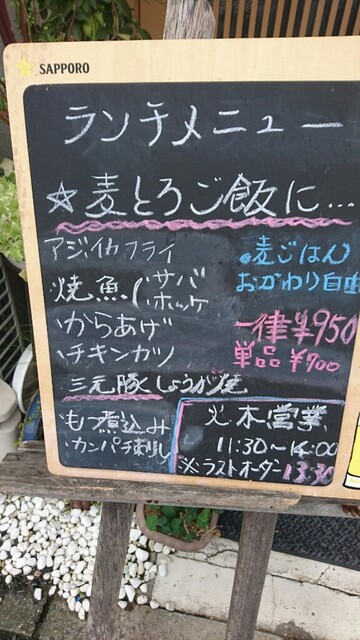 SAPPORO
ランチメニュー
☆麦とろご飯に…
アジ・イカフライ
焼魚(サバ・ホッケ
・からあげ
・チキンカツ
三元豚しょうが焼
・もつ煮込み
・カンパチ刺し
・麦ごはん
おかわり自由
一律¥950
単品¥700
火 木 営業
11:30~14:00
※ラストオーダー13:30